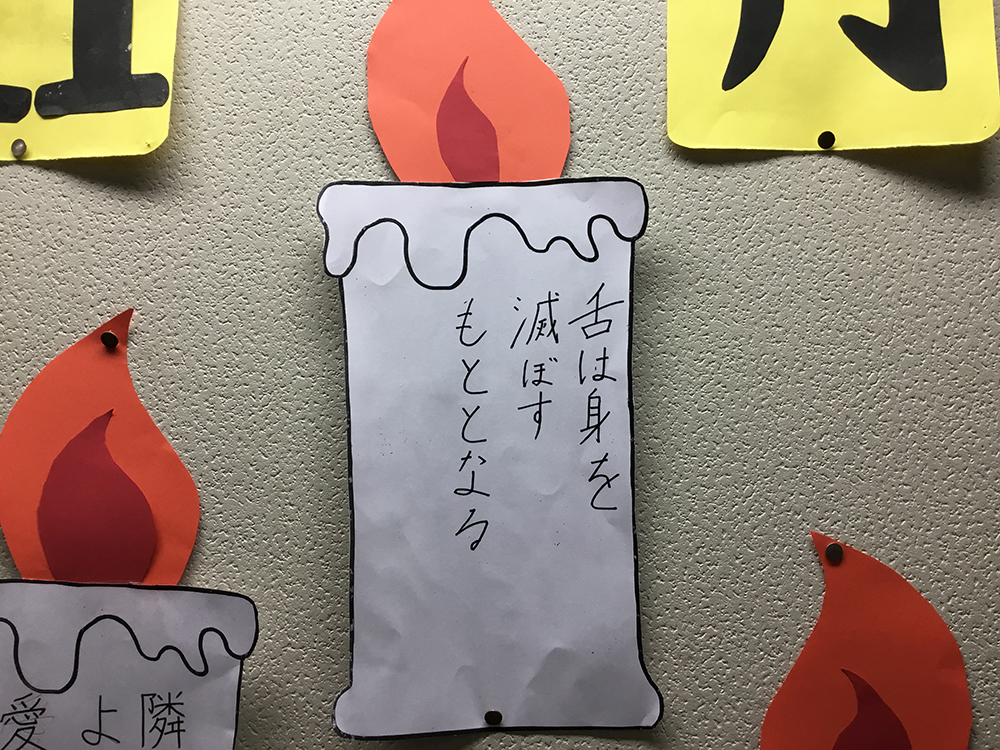 舌は身を
滅ぼす
もととなる
隣
よ
愛